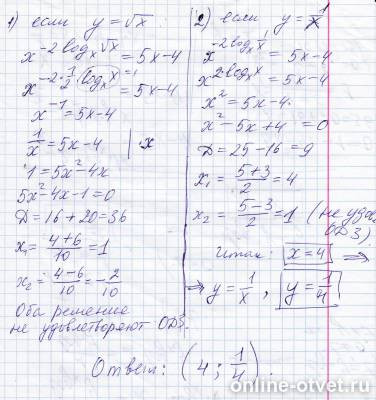 1) если y = √x
x^(-2 log_x √x) = 5x-4
x^(-2·1/2 (log_x x)^(=1)) = 5x-4
x^(-1) = 5x-4
1/x = 5x-4 | ·x
1 = 5x²-4x
5x²-4x-1=0
D = 16+20=36
x₁ = (4+6)/10 = 1
x₂ = (4-6)/10 = -2/10
Оба решение
не удовлетворяют ОДЗ.
2) если y = x^(-1)
x^(-2 log_x 1/x) = 5x-4
x^(2 log_x x) = 5x-4
x² = 5x-4.
x²-5x+4 = 0
D = 25-16 = 9
x₁ = (5+3)/2 = 4
x₂ = (5-3)/2 = 1 (не удо
ОДЗ)
Итак: x=4 ⇒
⇒ y = 1/x, y = 1/4
Ответ: (4; 1/4).
online-otvet.ru